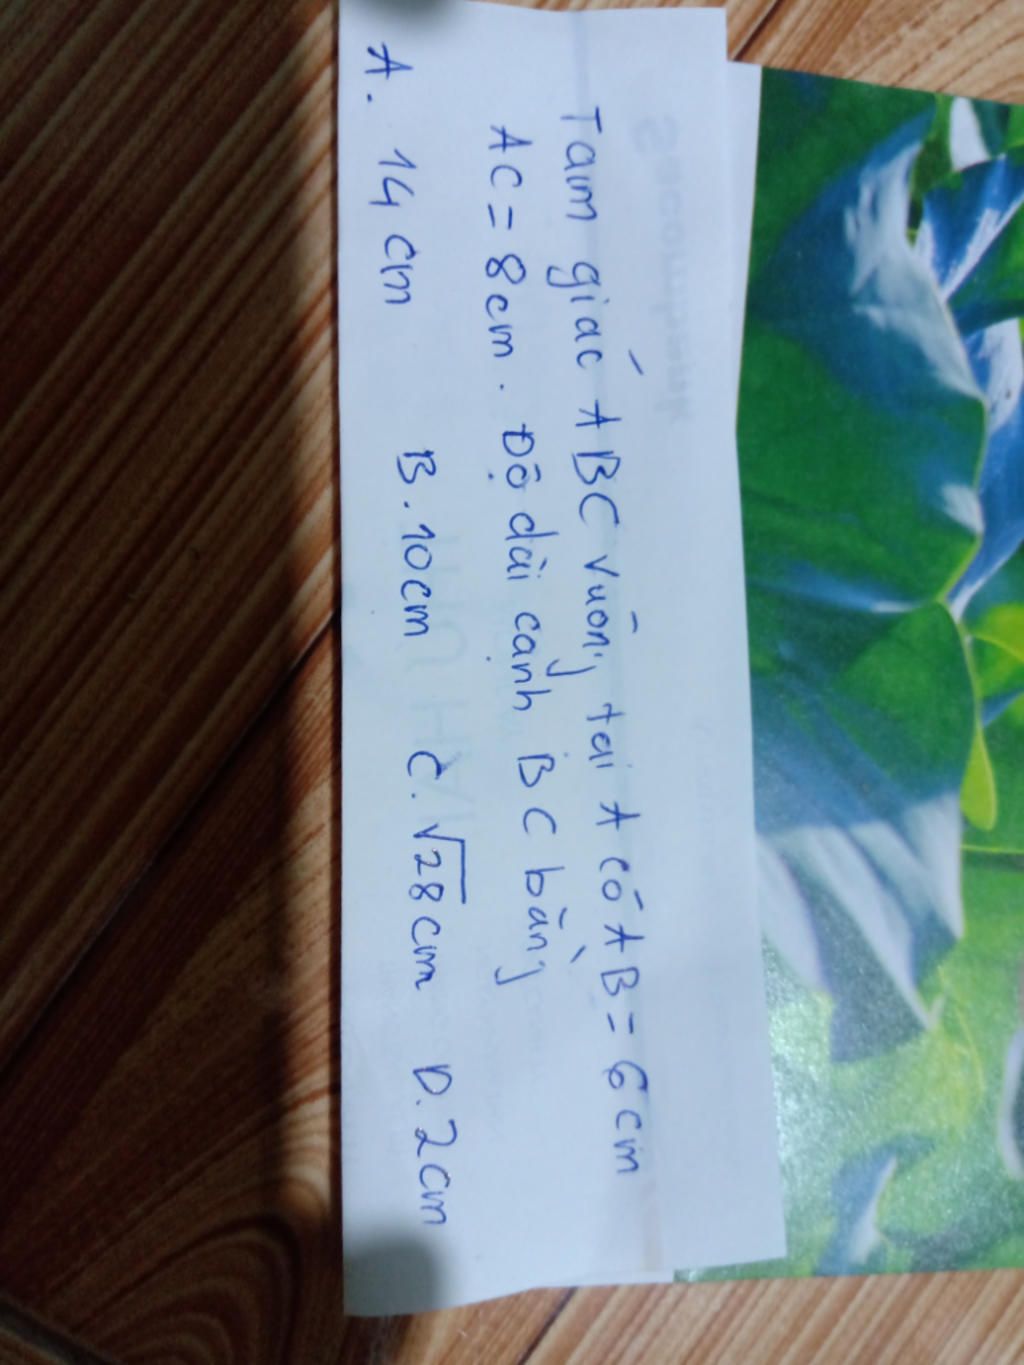 Taim giác ABC vuông tại A có AB = 6 cm
AC = 8cm. Độ dài cạnh BC bằng
A. 14 cm B. 10cm C. √28 cm D. 2cm